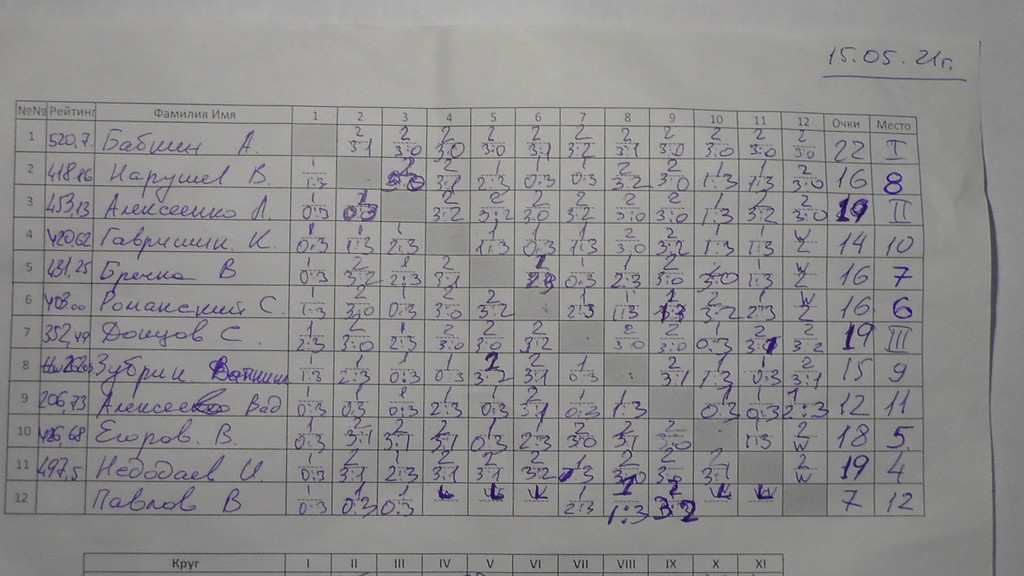 15.05.21г.
№№ Рейтинг Фамилия Имя 1 2 3 4 5 6 7 8 9 10 11 12 Очки Место
1 520,7 Бабкин А. 2 3:1 2 3:0 2 3:0 2 3:0 2 3:1 2 3:2 2 3:1 2 3:0 2 3:0 2 3:0 2 3:0 22 I
2 В. 1 1:3 2 3:0 2 3:1 1 2:3 1 0:3 1 0:3 2 3:2 2 3:0 1 1:3 1 1:3 2 3:0 16 8
3 453,13 Алексеенко Л. 1 0:3 1 0:3 2 3:2 2 3:2 2 3:0 2 3:2 2 3:0 2 3:0 1 1:3 2 3:2 2 3:0 19 II
4 420,62 Гавришин К. 1 0:3 1 1:3 1 2:3 1 1:3 1 0:3 1 1:3 2 3:0 2 3:2 1 1:3 1 1:3 W 2 14 10
5 431,25 В 1 0:3 2 3:2 1 2:3 2 3:1 1 2:3 1 0:3 1 2:3 2 3:0 2 3:0 1 1:3 W 2 16 7
6 408,00 Романский С. 1 1:3 2 3:0 1 0:3 2 3:0 2 3:2 1 2:3 1 1:3 1 1:3 2 3:2 1 2:3 W 2 16 6
7 352,49 Донцов С. 1 2:3 2 3:0 1 2:3 2 3:0 2 3:0 2 3:2 2 3:0 2 3:0 1 0:3 2 3:1 2 3:2 19 III
8 Зубрин 1 1:3 1 2:3 1 0:3 1 0:3 2 3:2 2 3:1 1 0:3 2 3:1 1 1:3 1 0:3 2 3:1 15 9
9 206,73 Вад 1 0:3 1 0:3 1 0:3 1 2:3 1 0:3 2 3:1 1 0:3 1 1:3 1 0:3 1 0:3 1 2:3 12 11
10 426,68 Егоров. В. 1 0:3 2 3:1 2 3:1 2 3:1 1 0:3 1 2:3 2 3:0 2 3:1 2 3:0 1 1:3 2 W 18 5
11 497,5 Недодаев И. 1 0:3 2 3:1 1 2:3 2 3:1 2 3:1 2 3:2 1 1:3 2 3:0 2 3:0 2 3:1 2 W 19 4
12 Павлов В 1 0:3 1 0:3 1 0:3 L L L 1 2:3 1 1:3 2 3:2 L L 7 12
Круг I II III IV V VI VII VIII IX X XI